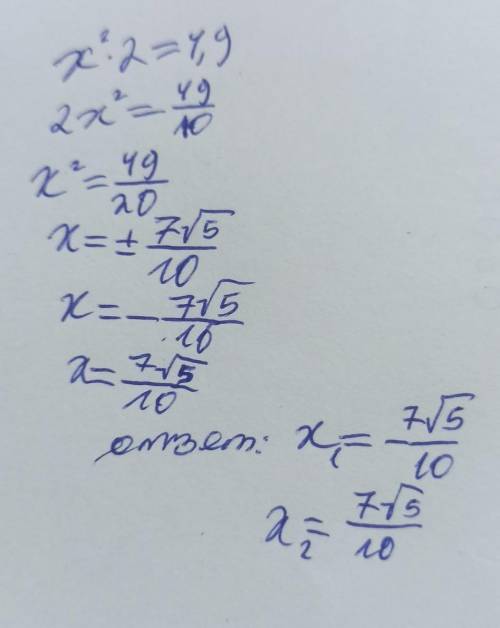 x²·2=4,9
2x²=49/10
x²=49/20
x=±7√5/10
x=-7√5/10
x=7√5/10
ответ: x₁=-7√5/10
x₂=7√5/10